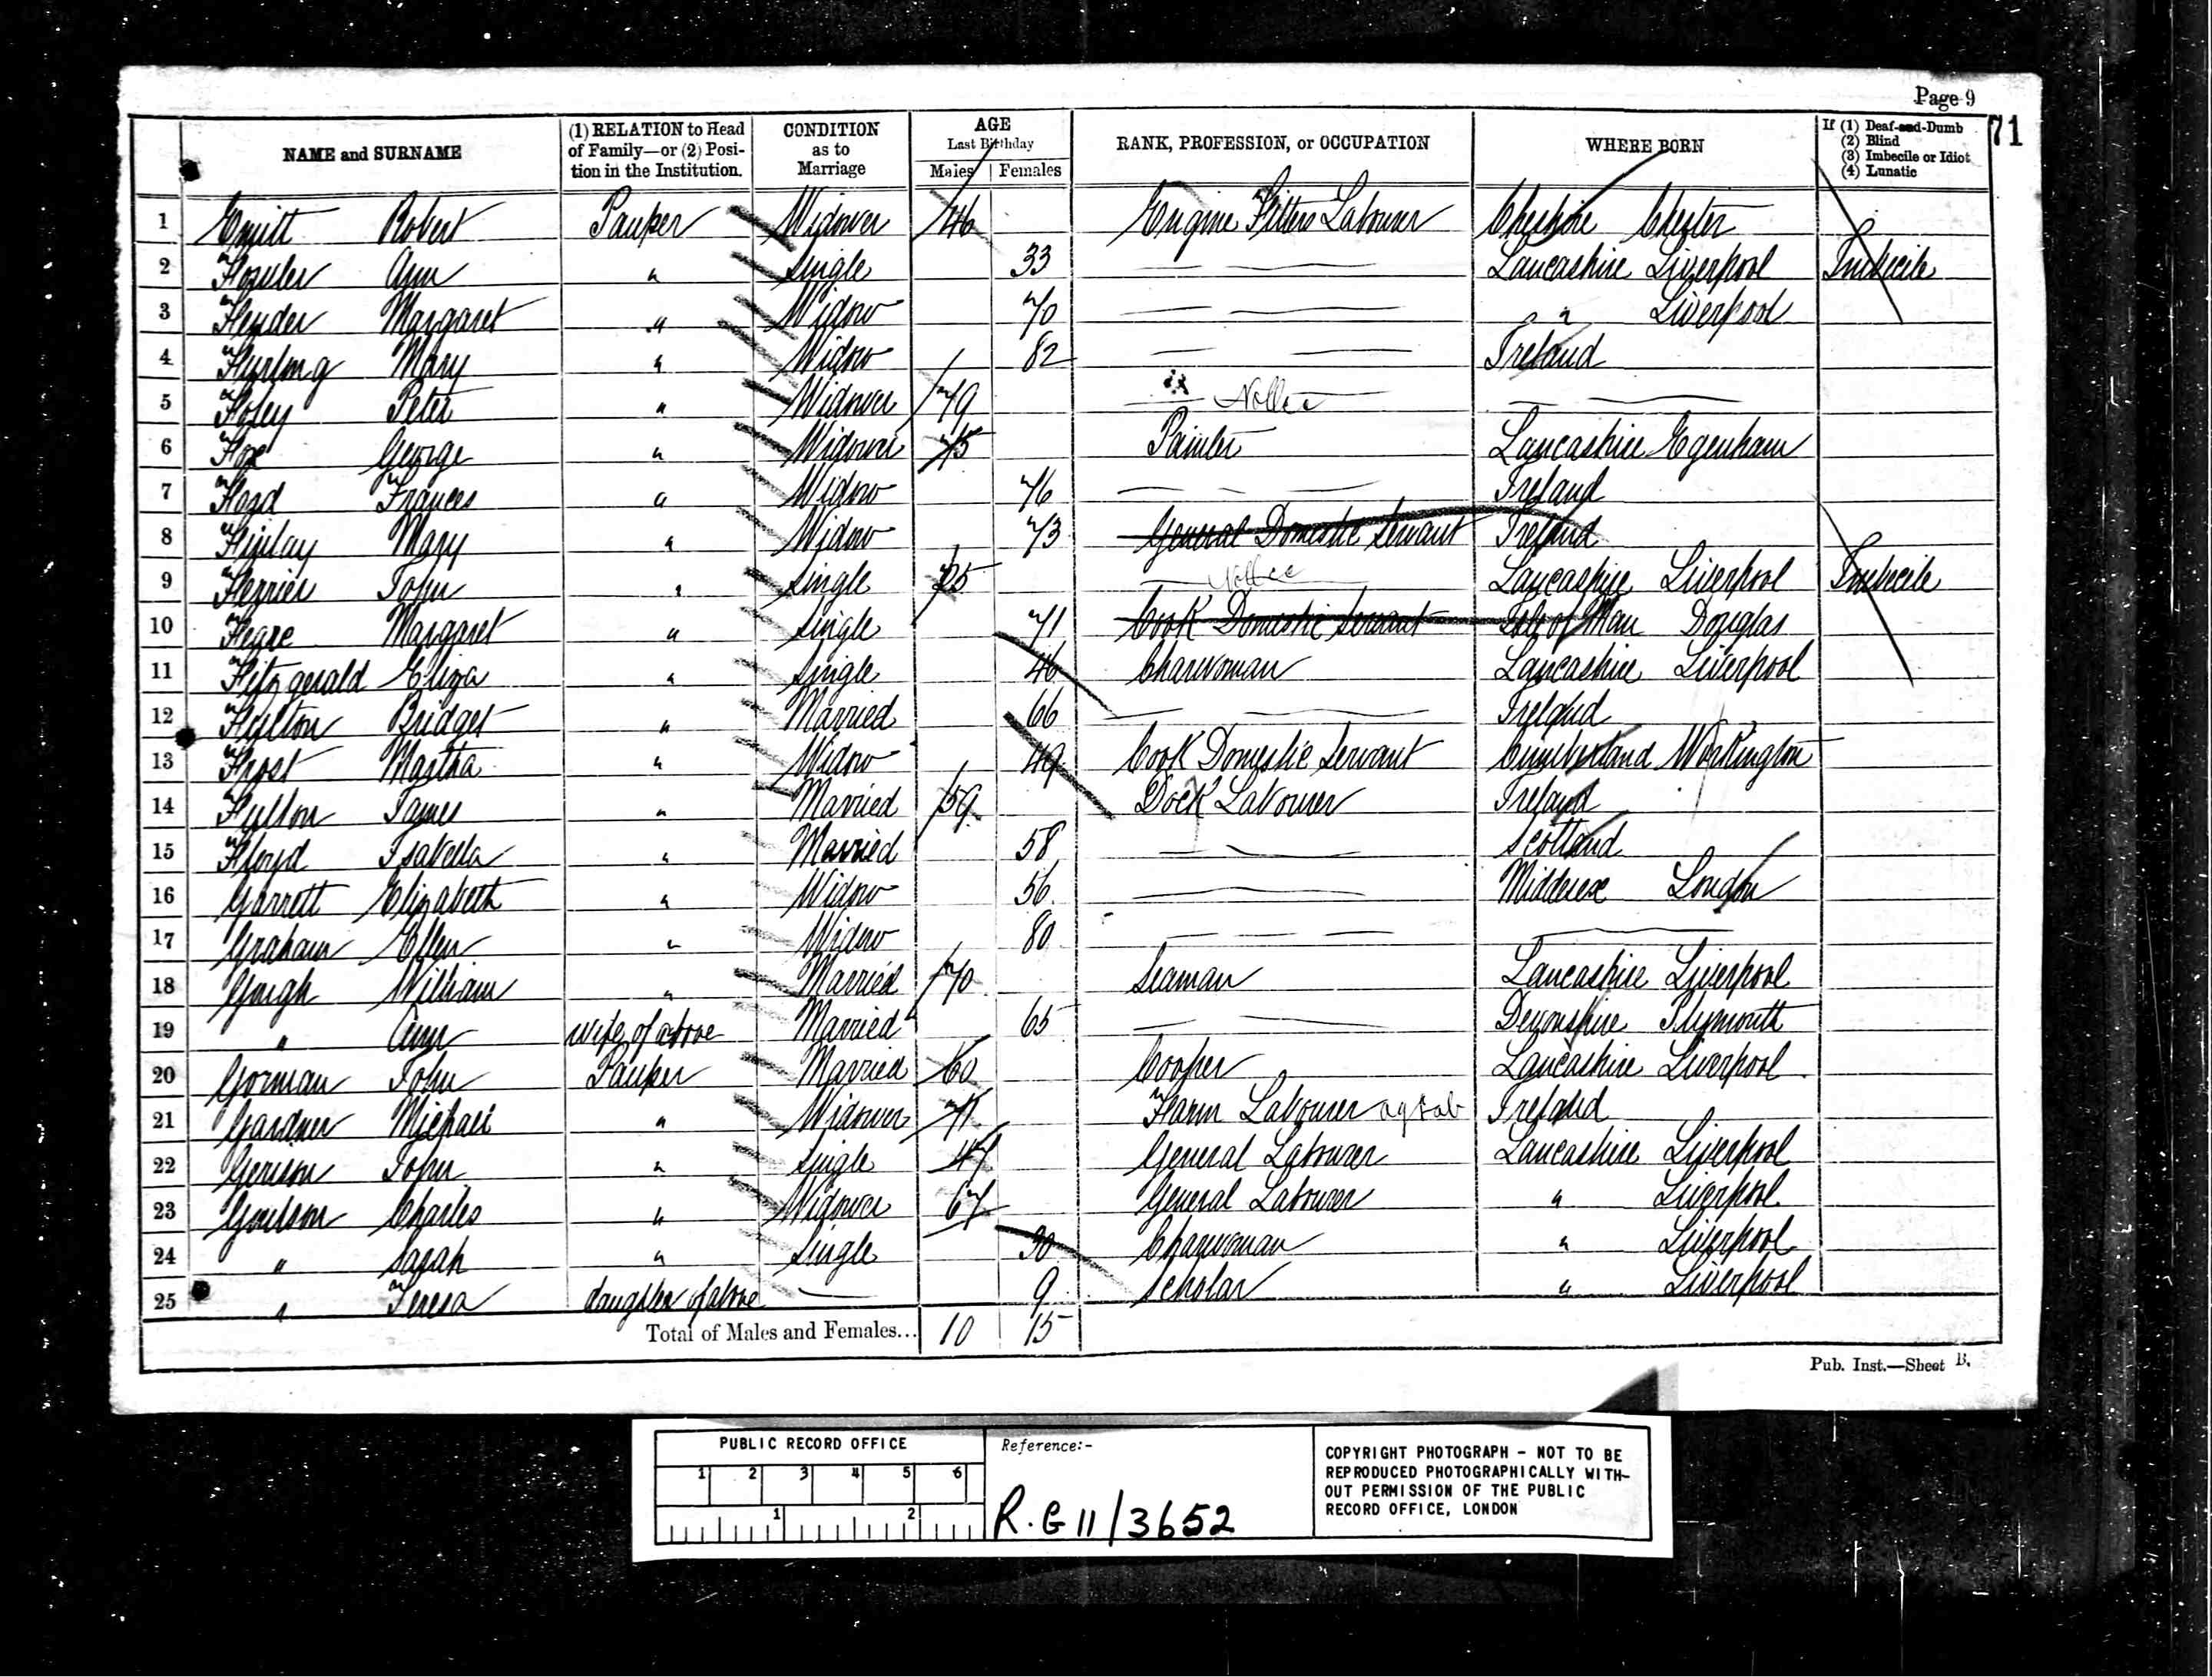 Page 9
71
NAME and SURNAME (1) RELATION to Head of Family—or (2) Position in the Institution. CONDITION as to Marriage AGE Last Birthday Males Females RANK, PROFESSION, or OCCUPATION WHERE BORN If (1) Deaf-and-Dumb (2) Blind (3) Imbecile or Idiot (4) Lunatic
1 Robert Pauper Widower 46 Engine Fitters Labourer Cheshire Chester
2 Ann " Single 33 Lancashire Liverpool Imbecile
3 Margaret " Widow 70 " Liverpool
4 Mary " Widow 82 Ireland
5 Foley Peter " Widower 79
6 Fox George " Widower 75 Painter Lancashire
7 Frances " Widow 76 Ireland
8 Finlay Mary " Widow 73 General Domestic Servant Ireland
9 Ferrier John " Single Lancashire Liverpool Imbecile
10 Margaret " Single 71 Cook Domestic Servant Isle of Man Douglas
11 Fitzgerald Eliza " Single 46 Charwoman Lancashire Liverpool
12 Fulton Bridget " Married 66 Ireland
13 Frost Martha " Widow 49 Cook Domestic Servant Cumberland Workington
14 Fulton James " Married 59 Dock Labourer Ireland
15 Floyd Isabella " Married 58 Scotland
16 Garrett Elizabeth " Widow 56 Middesex London
17 Graham Ellen " Widow 80
18 Gough William " Married 70 Seaman Lancashire Liverpool
19 " Ann wife of above Married 65 Devonshire Plymouth
20 Gorman John Pauper Married 60 Cooper Lancashire Liverpool
21 Gardner Michael " Widower 71 Farm Labourer ag lab Ireland
22 John " Single 47 General Labourer Lancashire Liverpool
23 Charles " Widower 67 General Labourer " Liverpool
24 " Sarah " Single 30 Charwoman " Liverpool
25 " Teresa daughter of above 9 Scholar " Liverpool
Total of Males and Females... 10 15
Pub. Inst.—Sheet B.
PUBLIC RECORD OFFICE
1 2 3 4 5 6
1 2
Reference:-
R.G 11/3652
COPYRIGHT PHOTOGRAPH - NOT TO BE
REPRODUCED PHOTOGRAPHICALLY WITH-
OUT PERMISSION OF THE PUBLIC
RECORD OFFICE, LONDON